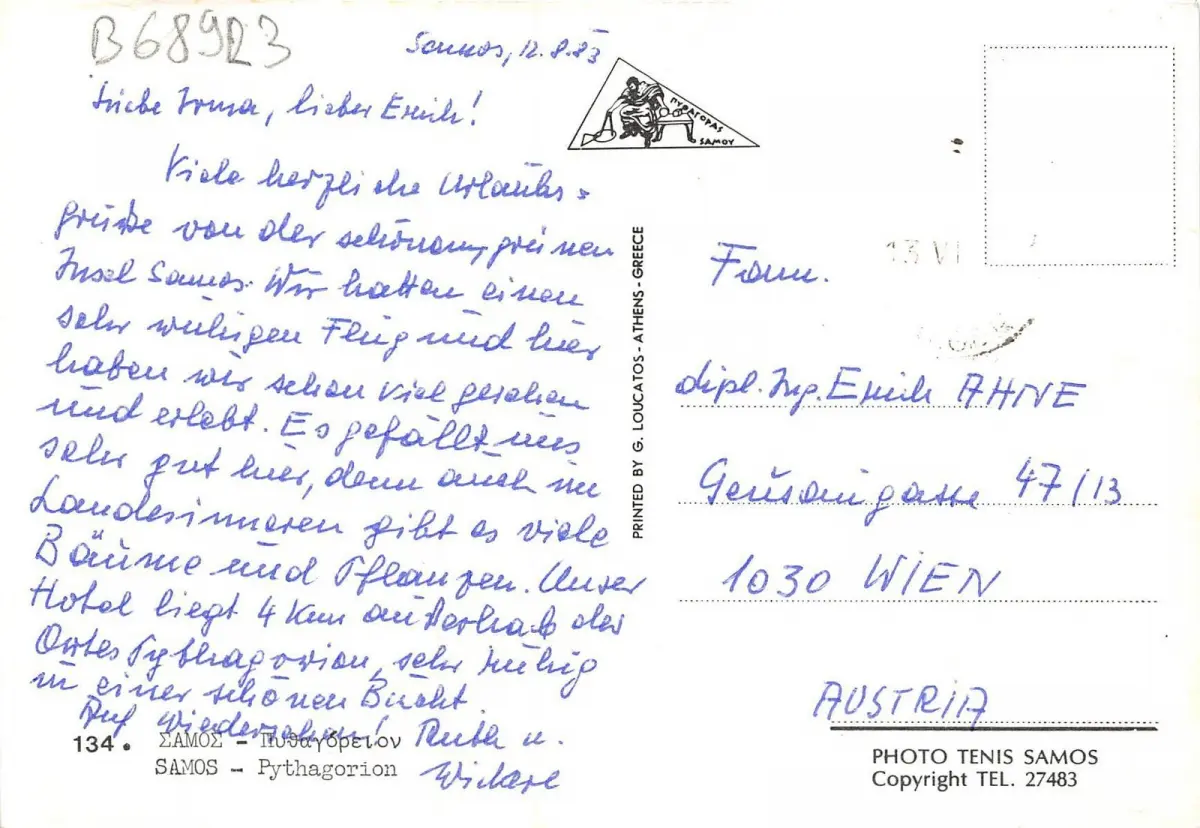 B68923
Samos, 12.8.83
Liebe Irma, lieber Erich!
Viele herzliche Urlaubs=
grüße von der schönen, grünen
Insel Samos. Wir hatten einen
sehr ruhigen Flug und hier
haben wir schon viel gesehen
und erlebt. Es gefällt uns
sehr gut hier, denn auch im
Landesinneren gibt es viele
Bäume und Pflanzen. Unser
Hotel liegt 4 km außerhalb des
Ortes Pythagorion, sehr ruhig
in einer schönen Bucht.
Auf Wiedersehen! Ruth u.
134. ΣΑΜΟΣ - Πυθαγόρειον
SAMOS - Pythagorion
ΠΥΘΑΓΟΡΑΣ
ΣΑΜΟΥ
PRINTED BY G. LOUCATOS - ATHENS - GREECE
13 VI
Fam.
dipl. Ing. Erich AHNE
Geusaugasse 47/13
1030 WIEN
AUSTRIA
PHOTO TENIS SAMOS
Copyright TEL. 27483